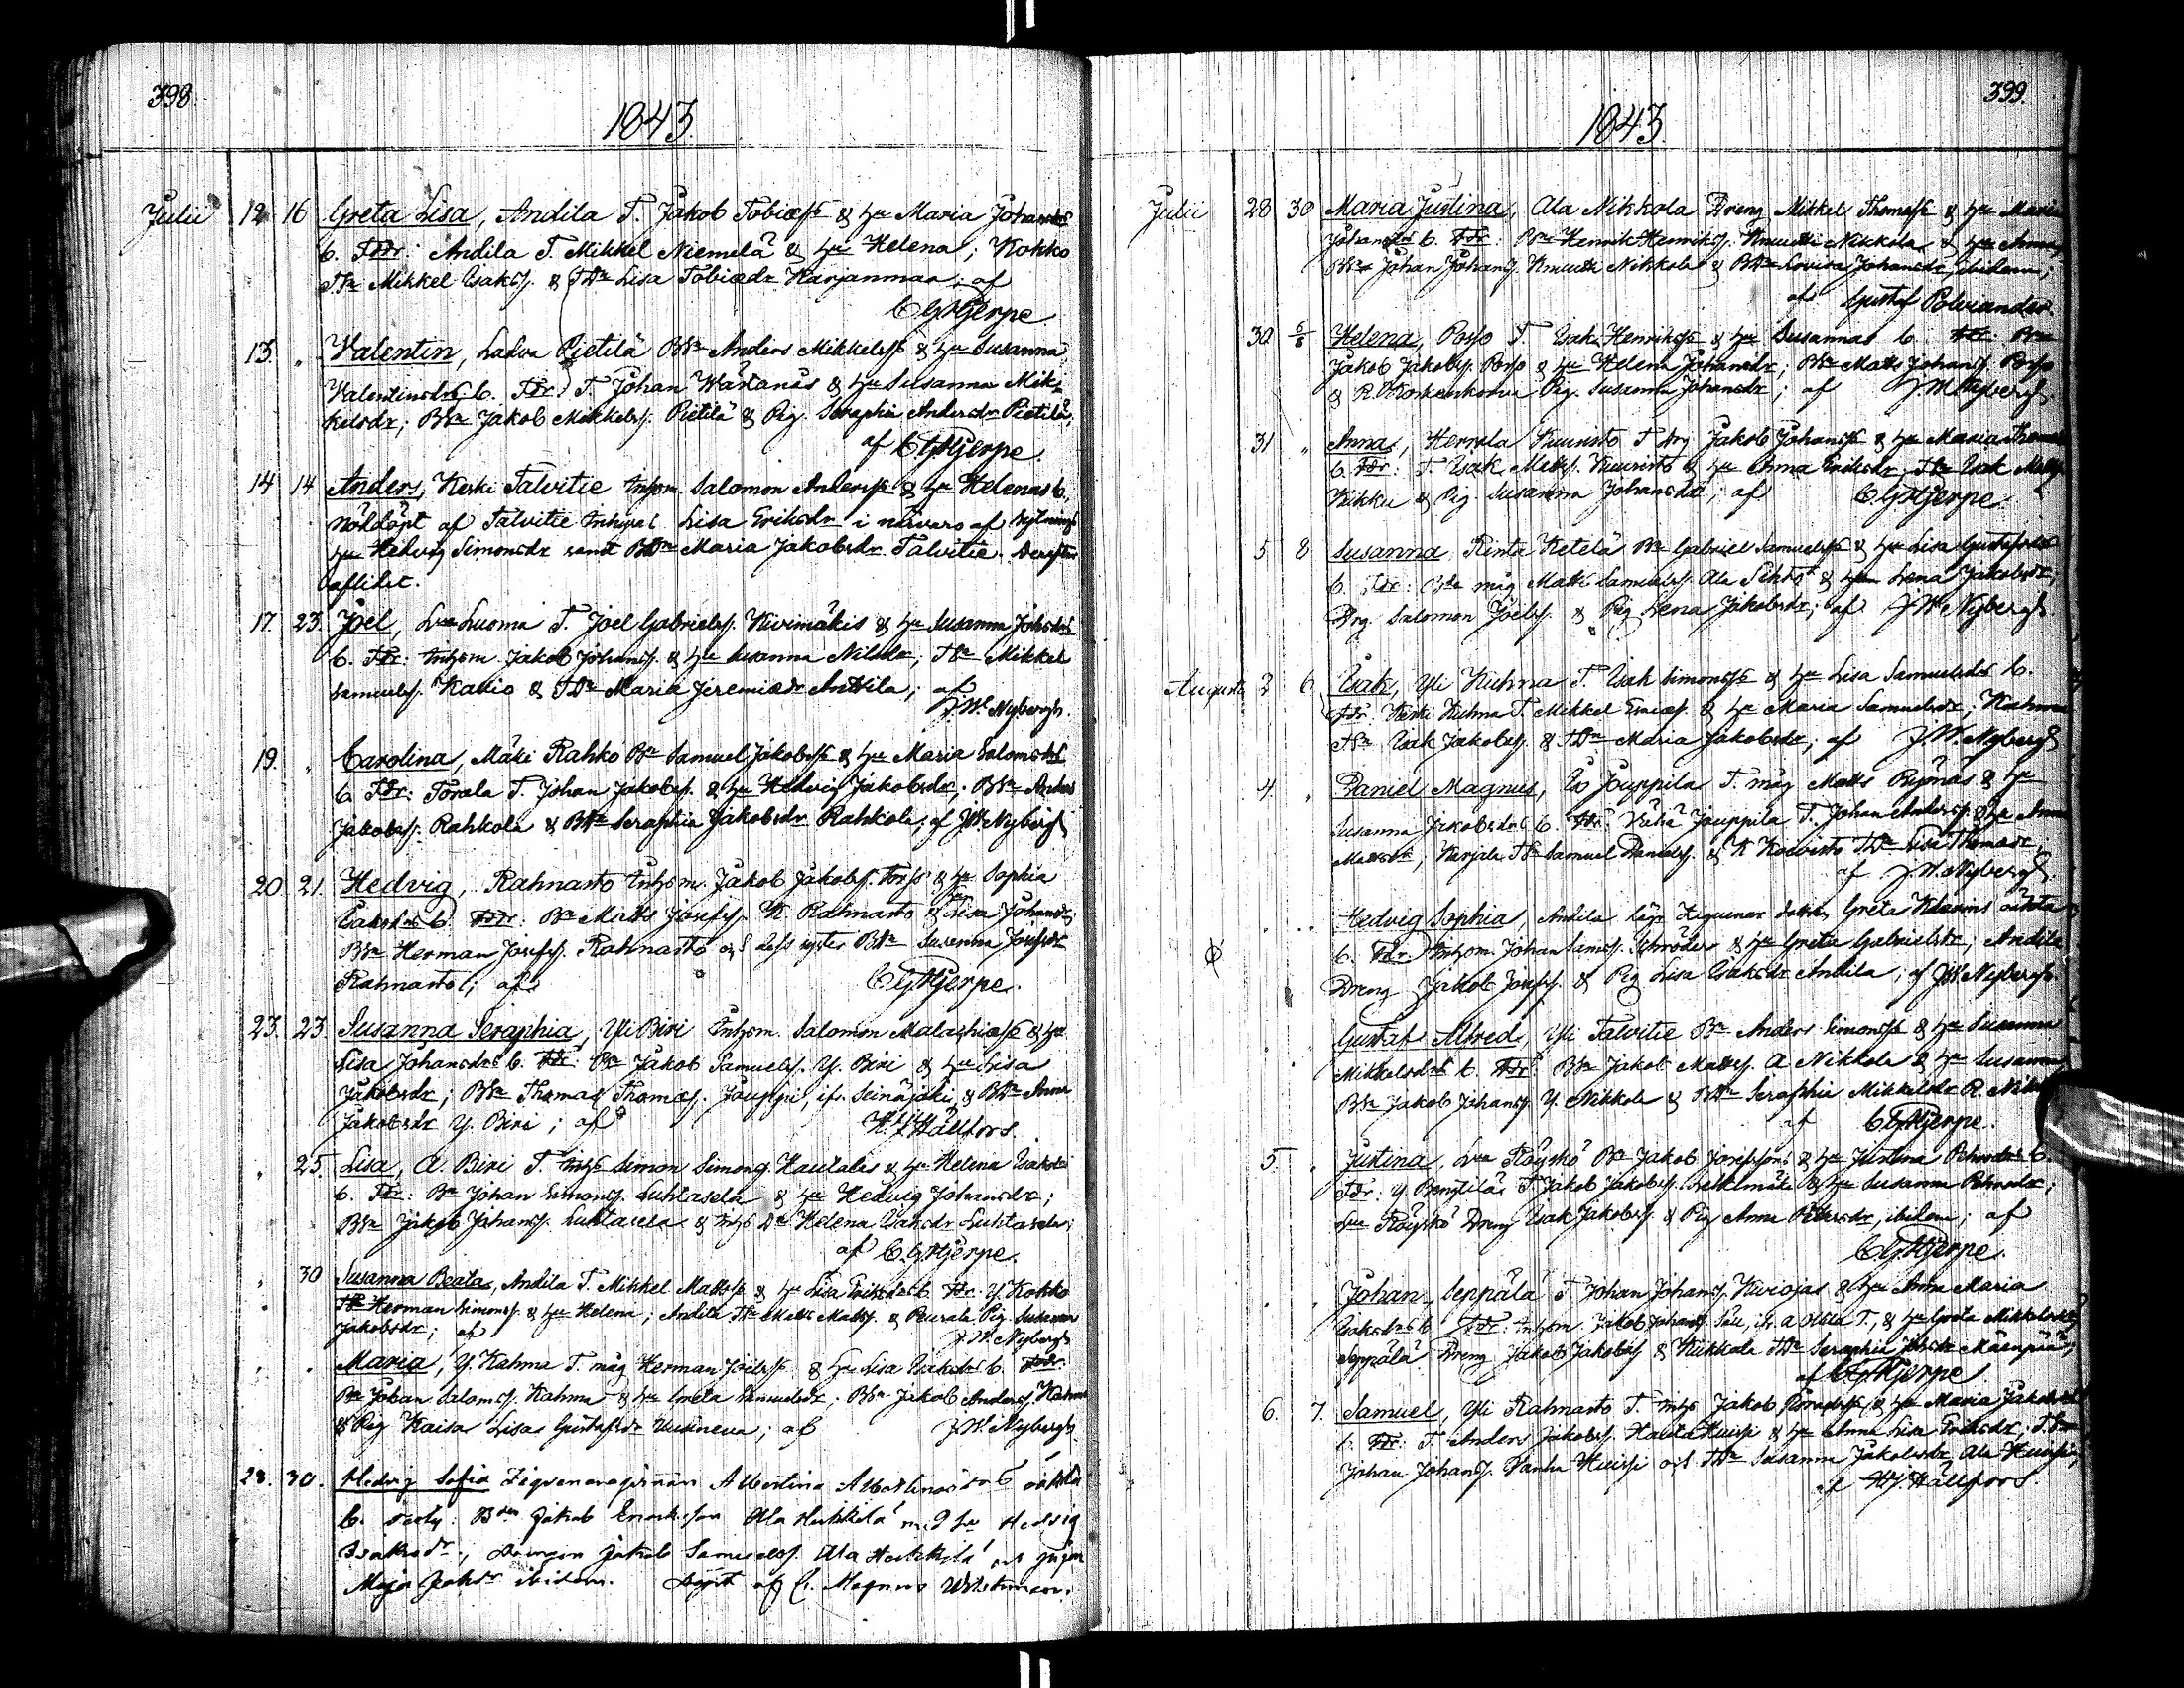 398.
1843.
Julii 12 16 Greta Lisa, Andila T. Jakob Tobiæss & hu Maria Johansdrs
b. Fdr: Andila T. Mikkel Niemelä & hu Helena; Kokko
TSn Mikkel Isaks. & TDr Lisa Tobiædr Karjanmaa; af
C G Hjerpe
13. " Valentin, Ladva Pietilä BSn Anders Mikkelss & hu Susanna
Valentinsdrs b. Fdr: T. Johan Wärtanäs & hu Susanna Mik-
kelsdr; BSn Jakob Mikkels. Pietilä & Pig. Seraphia Andersdr Pietilä;
af C G Hjerpe.
14 14 Anders, Keski Talvitie Inhsm. Salomon Anderss & hu Helenas b.,
nöddöpt af Talvitie Inhys Lisa Eriksdr i närvaro af
hu Hedvig Simonsdr samt BDr Maria Jakobsdr Talvitie. Derefter
aflidit.
17. 23. Joel, Lua Luoma T. Joel Gabriels. Kivimäkis & hu Susanna Johsdrs
b. Fdr: Inhsm. Jakob Johans. & hu Susanna Nilsdr; TSn Mikkel
Samuels. Kallio & TDr Maria Jeremiædr Anttila; af
J. W. Nybergh.
19. " Carolina, Mäki Rahko Bn Samuel Jakobss & hu Maria Salomsdrs
b. Fdr: Torala T. Johan Jakobs. & hu Hedvig Jakobsdr; BSn Anders
Jakobs. Rahkola & BDr Seraphia Jakobsdr Rahkola; af JW Nybergh
20. 21. Hedvig, Rahnasto Inhsm. Jakob Jakobs. Forss & hu Sophia
Isaksdrs b. Fdr: Bn Matts Josefs. K. Rahnasto & hu Lisa Johansdr,
BSn Herman Josefs. Rahnasto och dess syster BDr Susanna Josefsdr
Rahnasto; af C G Hjerpe.
23. 23. Susanna Seraphia, Yli Biri Inhsm. Salomon Malachiæss & hu
Lisa Johansdrs b. Fdr: Bn Jakob Samuels. Y. Biri & hu Lisa
Jakobsdr; BSn Thomas Thomæs. Jouppi, ifr. Seinäjoki, & BDr Anna
Jakobsdr Y. Biri; af H. J. Hällfors.
" 25. Lisa, A. Biri T. Inhs Simon Simons. Hautalas & hu Helena Isaksdrs
b. Fdr: Bn Johan Simons. Luhtasela & hu Hedvig Johansdr;
BSn Jakob Johans. Luhtasela & Inhs Dr Helena Isaksdr Luhtasela;
af C. G Hjerpe.
" 30 Susanna Beata, Andila T. Mikkel Matts & hu Lisa Eriksdrs b. Fdr: Y. Kokko
TSn Herman Simons. & hu Helena; Andila TSn Matts Matts. & Peurala Pig. Susanna
Jakobsdr; af J. W. Nybergh
" " Maria, Y. Kahma T. måg Herman Joelss & hu Lisa Isaksdrs b. Fdr:
Bn Johan Saloms. Kahma & hu Greta Samuelsdr; BSn Jakob Anders. Kahma
& Pig Kaisa Lisa Gustafsdr Uusineva; af J. W. Nybergh
28. 30. Hedvig Sofia Albertina Albertinas oäkta
b. Bdn Jakob Ala Heikkilä med hu Hedvig
Isaksdr, Drengen Jakob Samuels. Ala Heikkilä och pigan
Maja Jaksdr ibidem. Döpt af C. Magnus
399.
1843.
Julii 28 30 Maria Justina, Ala Nikkola Dreng Mikkel Thomæss & hu Maria
Johansdrs b. Fdr: Bn Henrik Henriks. Knuutti Nikkola & hu Anna;
BSn Johan Johans. Knuutti Nikkola & BDr Lovisa Johansdr ibidem;
af Gustaf Polviander.
30 6/8 Helena, Posso T. Isak Henrikss & hu Susannas b. Fdr: Bn
Jakob Jakobs. Posso & hu Helena Johansdr; BSn Matts Johans. Posso
& R. Koskenkorva Pig. Susanna Johansdr; af J. W. Nybergh
31 " Anna, Herrala Kuuristo T drg Jakob Johanss & hu Maria
b. Fdr: T. Isak Matts. Kuuristo & hu Anna Eriksdr; TSn Isak Matts.
Kikku & Pig. Susanna Johansdr; af C. G Hjerpe.
5 8 Susanna, Rinta Ketelä Bn Gabriel Samuelss & hu Lisa Gustafsdrs
b. Fdr: Bn måg Matts Samuels. Ala & hu Lena Jakobsdr;
Drg. Salomon Joels. & Pig Lena Jakobsdr; af J. W. Nybergh
Augusti 2 6 Isak, Yli Kuhna T. Isak Simonss & hu Lisa Samuelsdrs b.
Fdr: Keski Kuhna T. Mikkel & hu Maria Samuelsdr; Kuhna
TSn Isak Jakobs. & TDr Maria Jakobsdr; af J. W. Nybergh
4. " Daniel Magnus, Iso Jouppila T. måg Matts Byönäs & hu
Susanna Jakobsdrs b. Fdr: Vähä Jouppila T. Johan Anders. & hu Anna
Karjala TSn Samuel Daniels. & K Koivisto TDr Lisa Thomædr
af J. W. Nybergh
" " Hedvig Sophia, Andila Ziguenar Greta oäkta
b. Fdr: Inhsm. Johan Schröder & hu Greta Gabrielsdr; Andila
Dreng Jakob Josefs. & Pig Lisa Isaksdr Andila; af JW Nybergh
" " Gustaf Alfred, Yli Talvitie Bn Anders Simonss & hu Susanna
Mikkelsdrs b. Fdr: BSn Jakob Matts. A Nikkola & hu Susanna
BSn Jakob Johans. Y. Nikkola & BDr Seraphia Mikkelsdr R.
af C G Hjerpe.
5. " Justina, Lua Röyskö Bn Jakob Josefssons & hu Justina b.
Fdr: Y Bengtilä T Jakob Jakobs. & hu Susanna
Lua Röyskö Dreng Isak Jakobs. & Pig Anna ibidem; af
C G Hjerpe.
" " Johan, Seppälä T Johan Johans. Kiviojas & hu Anna Maria
Isaksdrs b. Fdr: Inhsm. Jakob Johans. T., & hu Greta
Seppälä Dreng Jakob Jakobs. & Kikkala TDr Seraphia Mäenpää;
af C G Hjerpe
6. 7. Samuel, Yli Rahnasto T. Inhs Jakob & hu Maria
b. Fdr: T. Anders Jakobs. Hauta Huissi & hu Anna Lisa Eriksdr; TSn
Johan Johans. Vanha Huissi och TDr Susanna Jakobsdr Ala Huissi;
af H J. Hällfors.